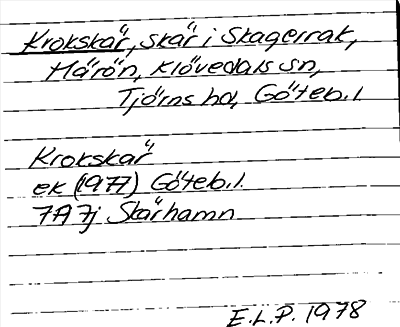 Krokskär, skär i Skagerrak,
Härön, Klövedals sn,
Tjörns hd, Göteb.l.
Krokskär
ek (1977) Göteb.l.
7A7j Skärhamn
E.L.P. 1978